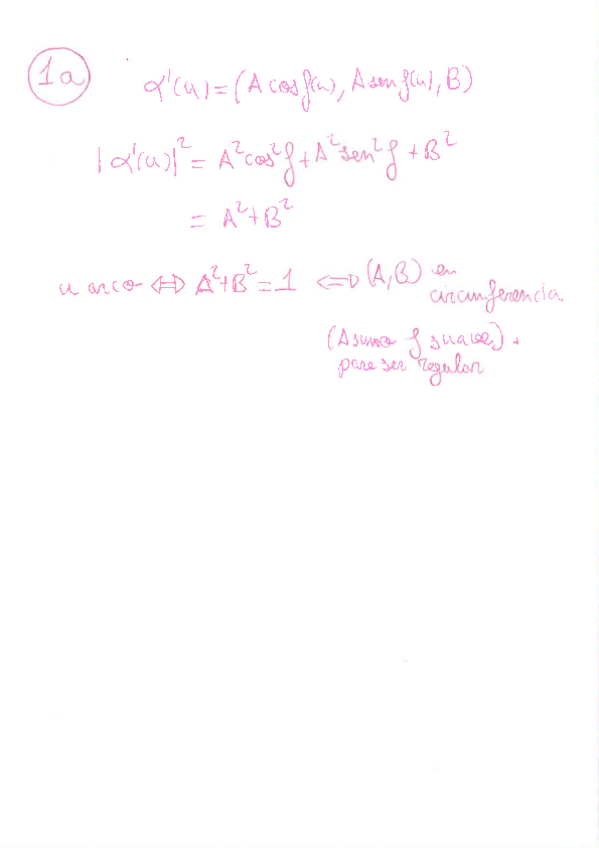 1a
α'(u) = (A cos f(u), A sen f(u), B)
|α'(u)|² = A² cos² f + A² sen² f + B²
= A² + B²
u arco ⇔ A² + B² = 1 ⇔ (A, B) en
circunferencia
(Asumo f suave) .
para ser regular